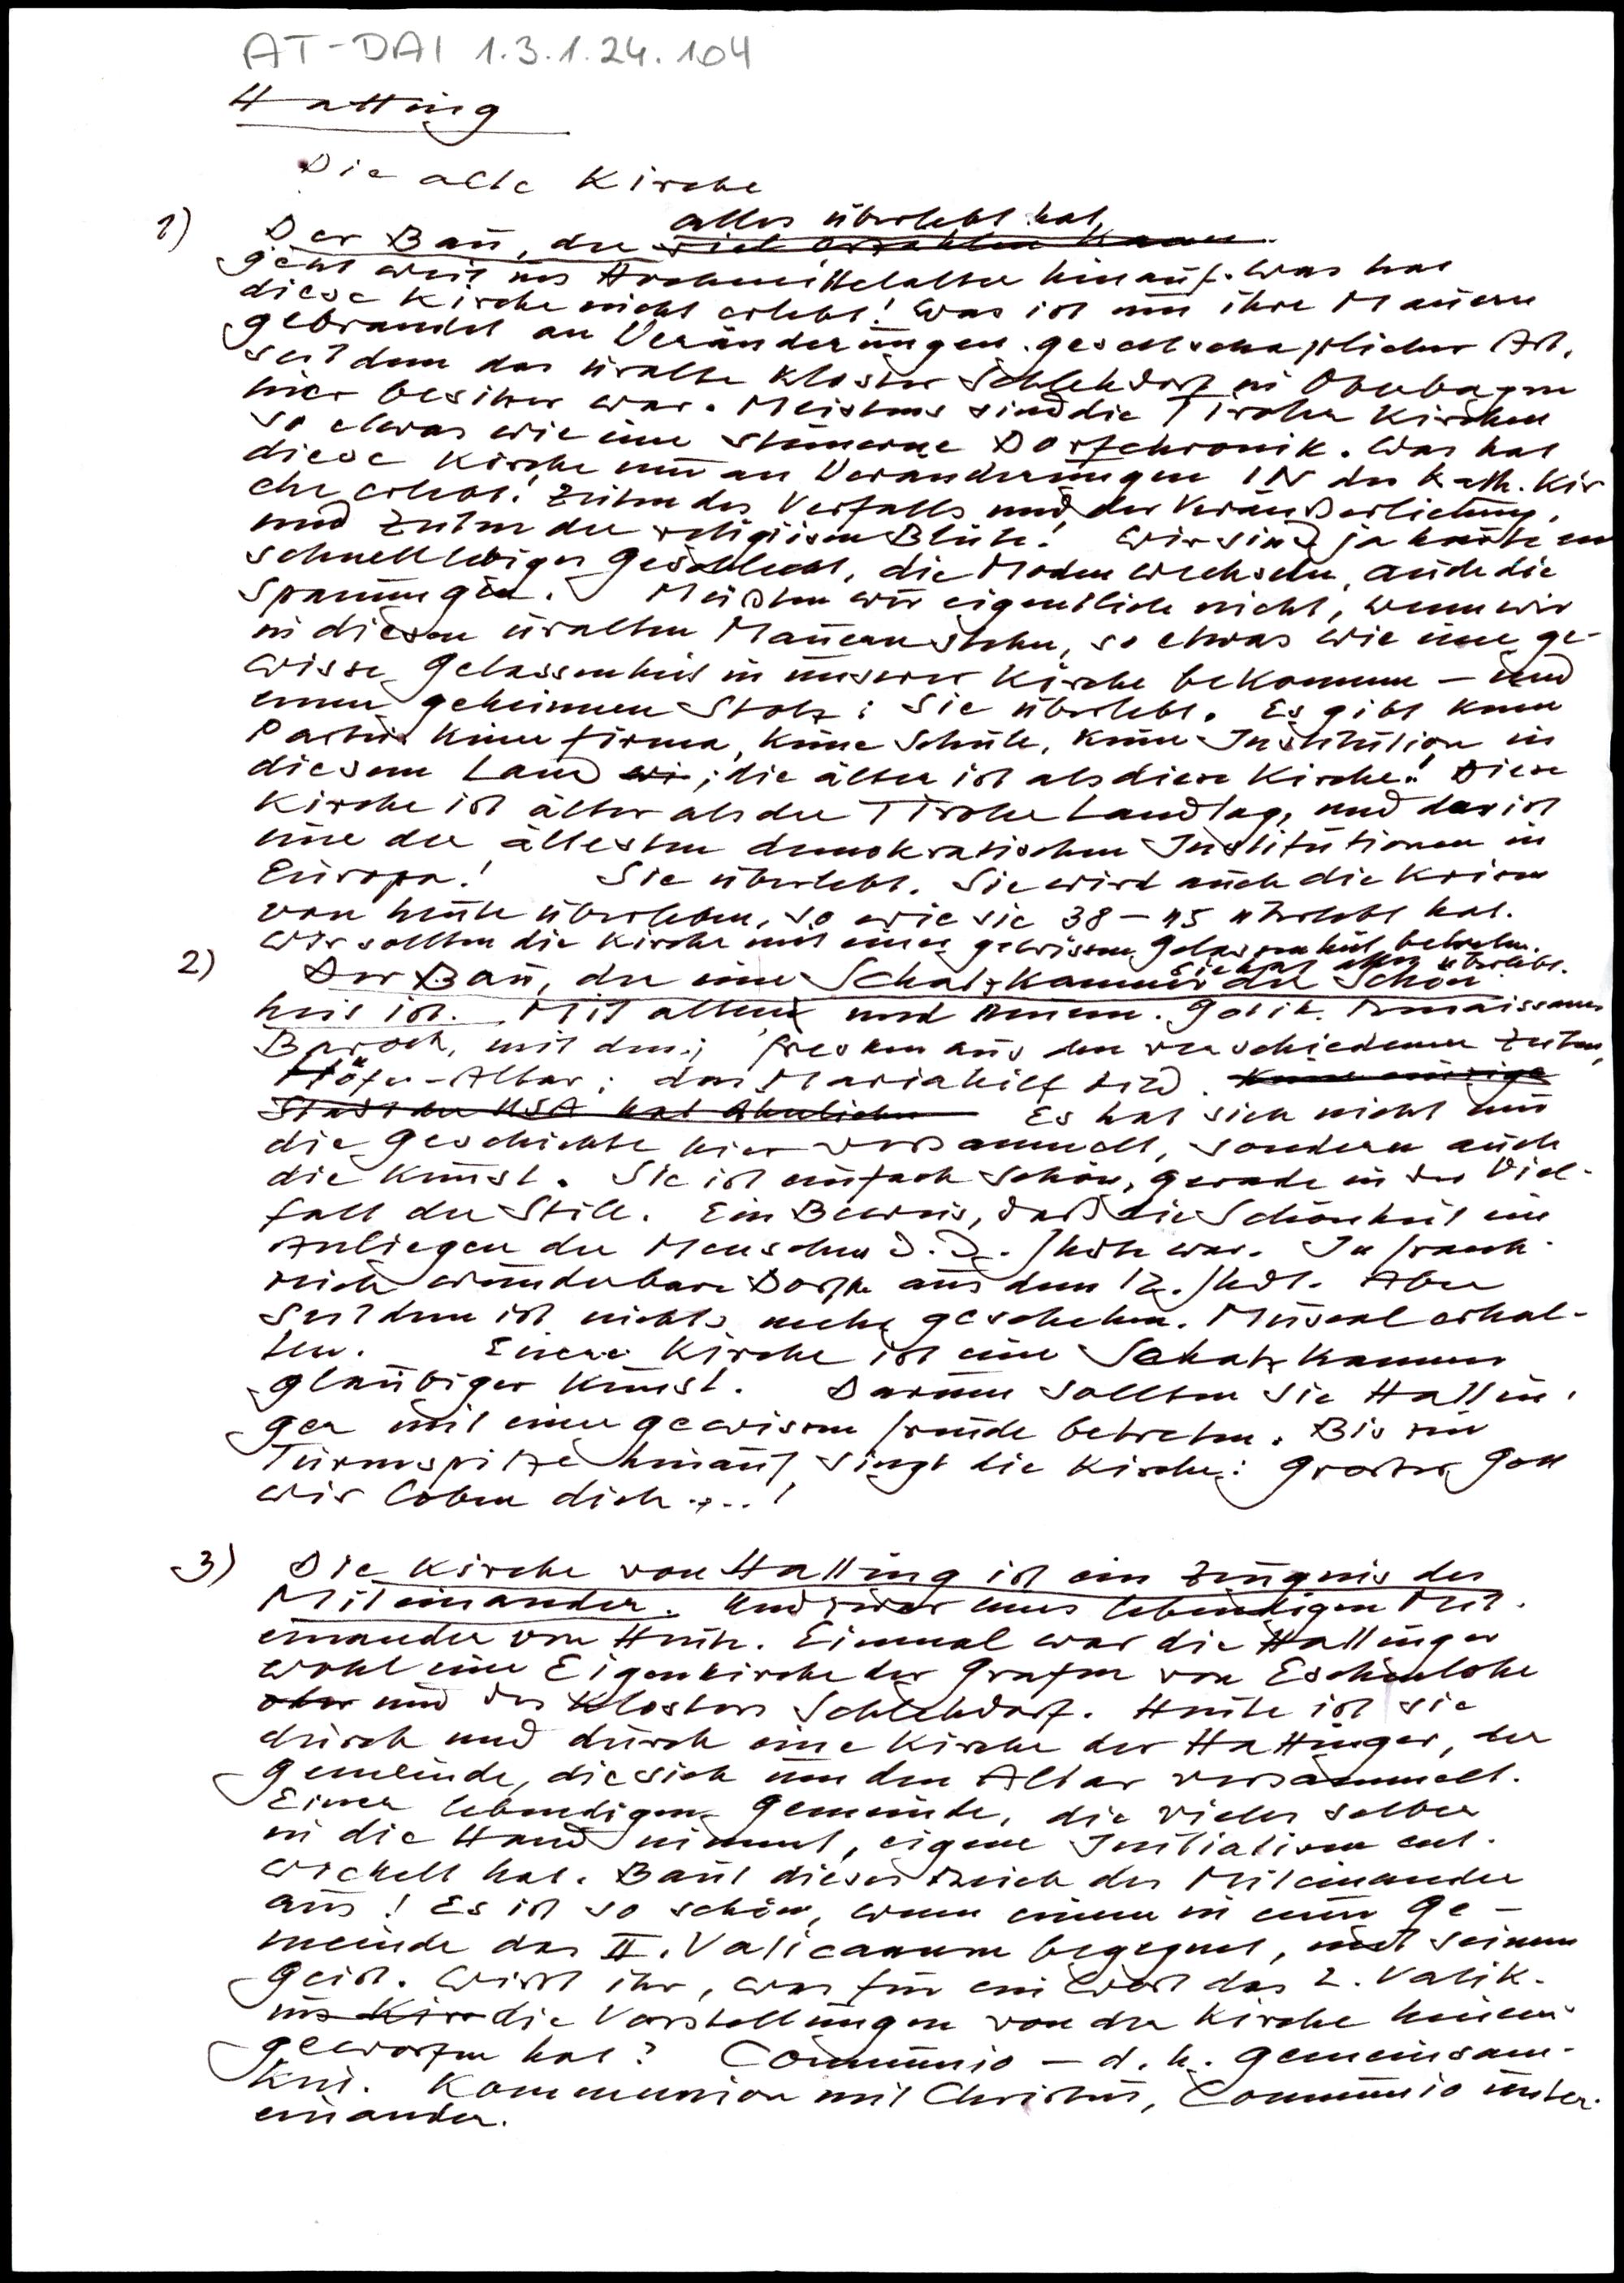 AT-DAI 1.3.1.24.104
Hatting
Die alte Kirche
alles überlebt hat,
1) Der Bau, der viel erzählen kann.
geht weit ins Hochmittelalter hinauf. Was hat
diese Kirche nicht erlebt! Was ist um ihre Mauern
gebrandet an Veränderungen gesellschaftlicher Art,
seit dem das uralte Kloster Schlehdorf in Oberbayern
hier Besitzer war. Meistens sind die Tiroler Kirchen
so etwas wie eine steinerne Dorfchronik. Was hat
diese Kirche nur an Veränderungen IN der kath. Kir
che erlebt! Zeiten des Verfalls und der Veräußerlichung,
und Zeiten der religiösen Blüte! Wir sind ja heute ein
schnelllebiges Geschlecht, die Moden wechseln, auch die
Spannungen. Müßten wir eigentlich nicht, wenn wir
in diesen uralten Mauern stehn, so etwas wie eine ge-
wisse Gelassenheit in unserer Kirche bekommen – und
einen geheimen Stolz: Sie überlebt. Es gibt keine
Partei keine Firma, keine Schule, keine Institution in
diesem Land wi, die älter ist als diese Kirche! Diese
Kirche ist älter als der Tiroler Landtag, und das ist
eine der ältesten demokratischen Institutionen in
Europa! Sie überlebt. Sie wird auch die Krisen
von heute überleben, so wie sie 38–45 überlebt hat.
Wir sollten die Kirche mit einer gewissen Gelassenheit betreten.
Sie hat alles überlebt.
2) Der Bau, der eine Schatzkammer der Schön
heit ist. Mit altem und neuem. Gotik. Renaissance
Barock, mit den; Fresken aus den verschiedenen Zeiten,
Altar; das Mariahilf bild. Keine einzige
Stadt der USA hat Ähnliches Es hat sich nicht nur
die Geschichte hier versammelt, sondern auch
die Kunst. Sie ist einfach schön, gerade in der Viel-
falt der Stile. Ein Beweis, daß die Schönheit ein
Anliegen der Menschen d. d. Jhdte war. In Frank-
reich wunderbare Dorfk. aus dem 12. Jhdt. Aber
seitdem ist nichts mehr geschehen. Museal erhal-
ten. Eure Kirche ist eine Schatzkammer
gläubiger Kunst. Darum sollten sie Hattin-
ger mit einer gewissen Freude betreten. Bis zur
Turmspitze hinauf singt die Kirche: Großer Gott
wir loben dich ...!
3) Die Kirche von Hatting ist ein Zeugnis des
Miteinander. Und zwar eines lebendigen Mit-
einander von Heute. Einmal war die Hattinger
wohl eine Eigenkirche der Grafen von Eschenlohe
oder und des Klosters Schlehdorf. Heute ist sie
durch und durch eine Kirche der Hattinger, der
Gemeinde, die sich um den Altar versammelt.
Einer lebendigen Gemeinde, die vieles selber
in die Hand nimmt, eigene Initiativen ent-
wickelt hat. Baut dieses Reich des Miteinander
aus! Es ist so schön, wenn einem in einer Ge-
meinde das II. Vaticanum begegnet, mit seinem
Geist. Wißt ihr, was für ein Wort das 2. Vatik.
ins Kir die Vorstellungen von der Kirche hinein
geworfen hat? Communio – d. h. Gemeinsam-
keit. Kommunion mit Christus, Communio unter-
einander.